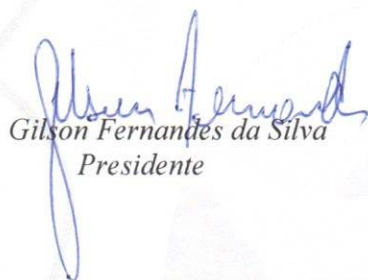 Gilson Fernandes
Gilson Fernandes da Silva
Presidente